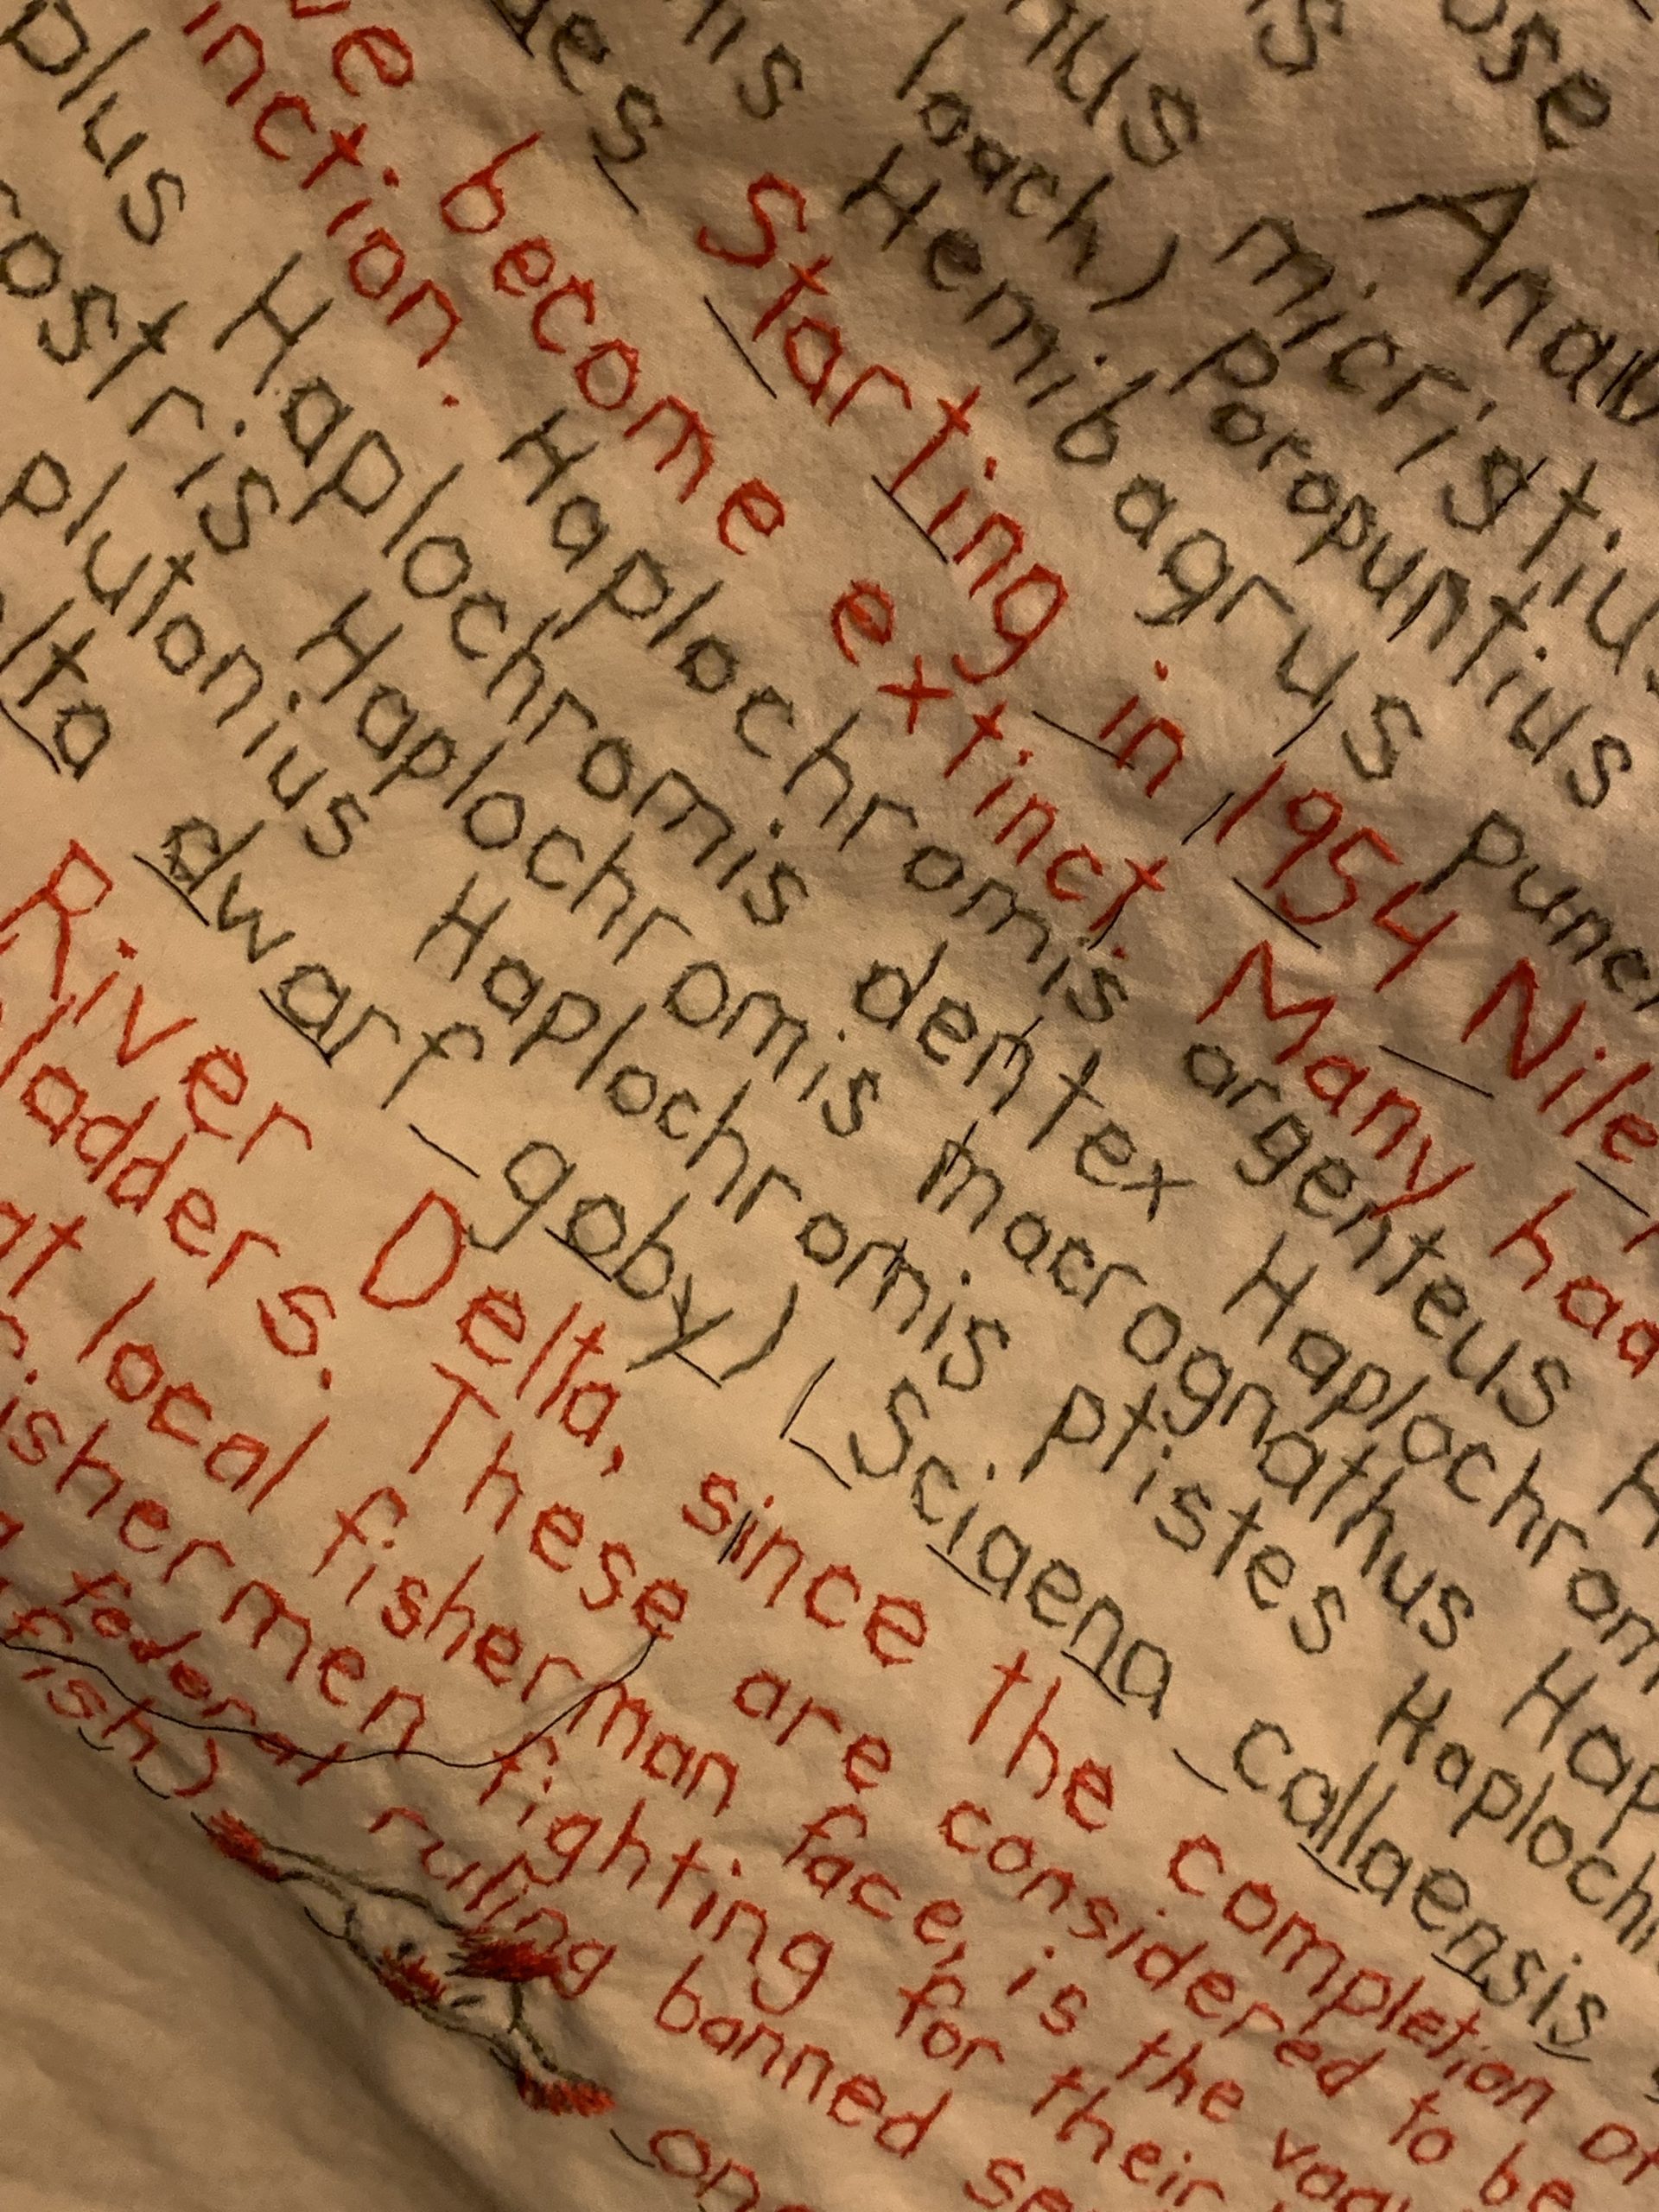 ose
is Anab
nus micristius
loach) Poropuntius
Hemibagrus punc
des Starting in 1954 Nile
ve become extinct. Many had
inction. Haplochromis argenteus H
plus Haplochromis dentex Haplochrom
rostris Haplochromis macrognathus Hap
plutonius Haplochromis ptistes Haploch
lta dwarf goby) (Sciaena callaensis
River Delta, since the completion of
ladders. These are considered to be
at local fisherman face, is the vaq
ishermen fighting for their
federal ruling banned se
fish) on